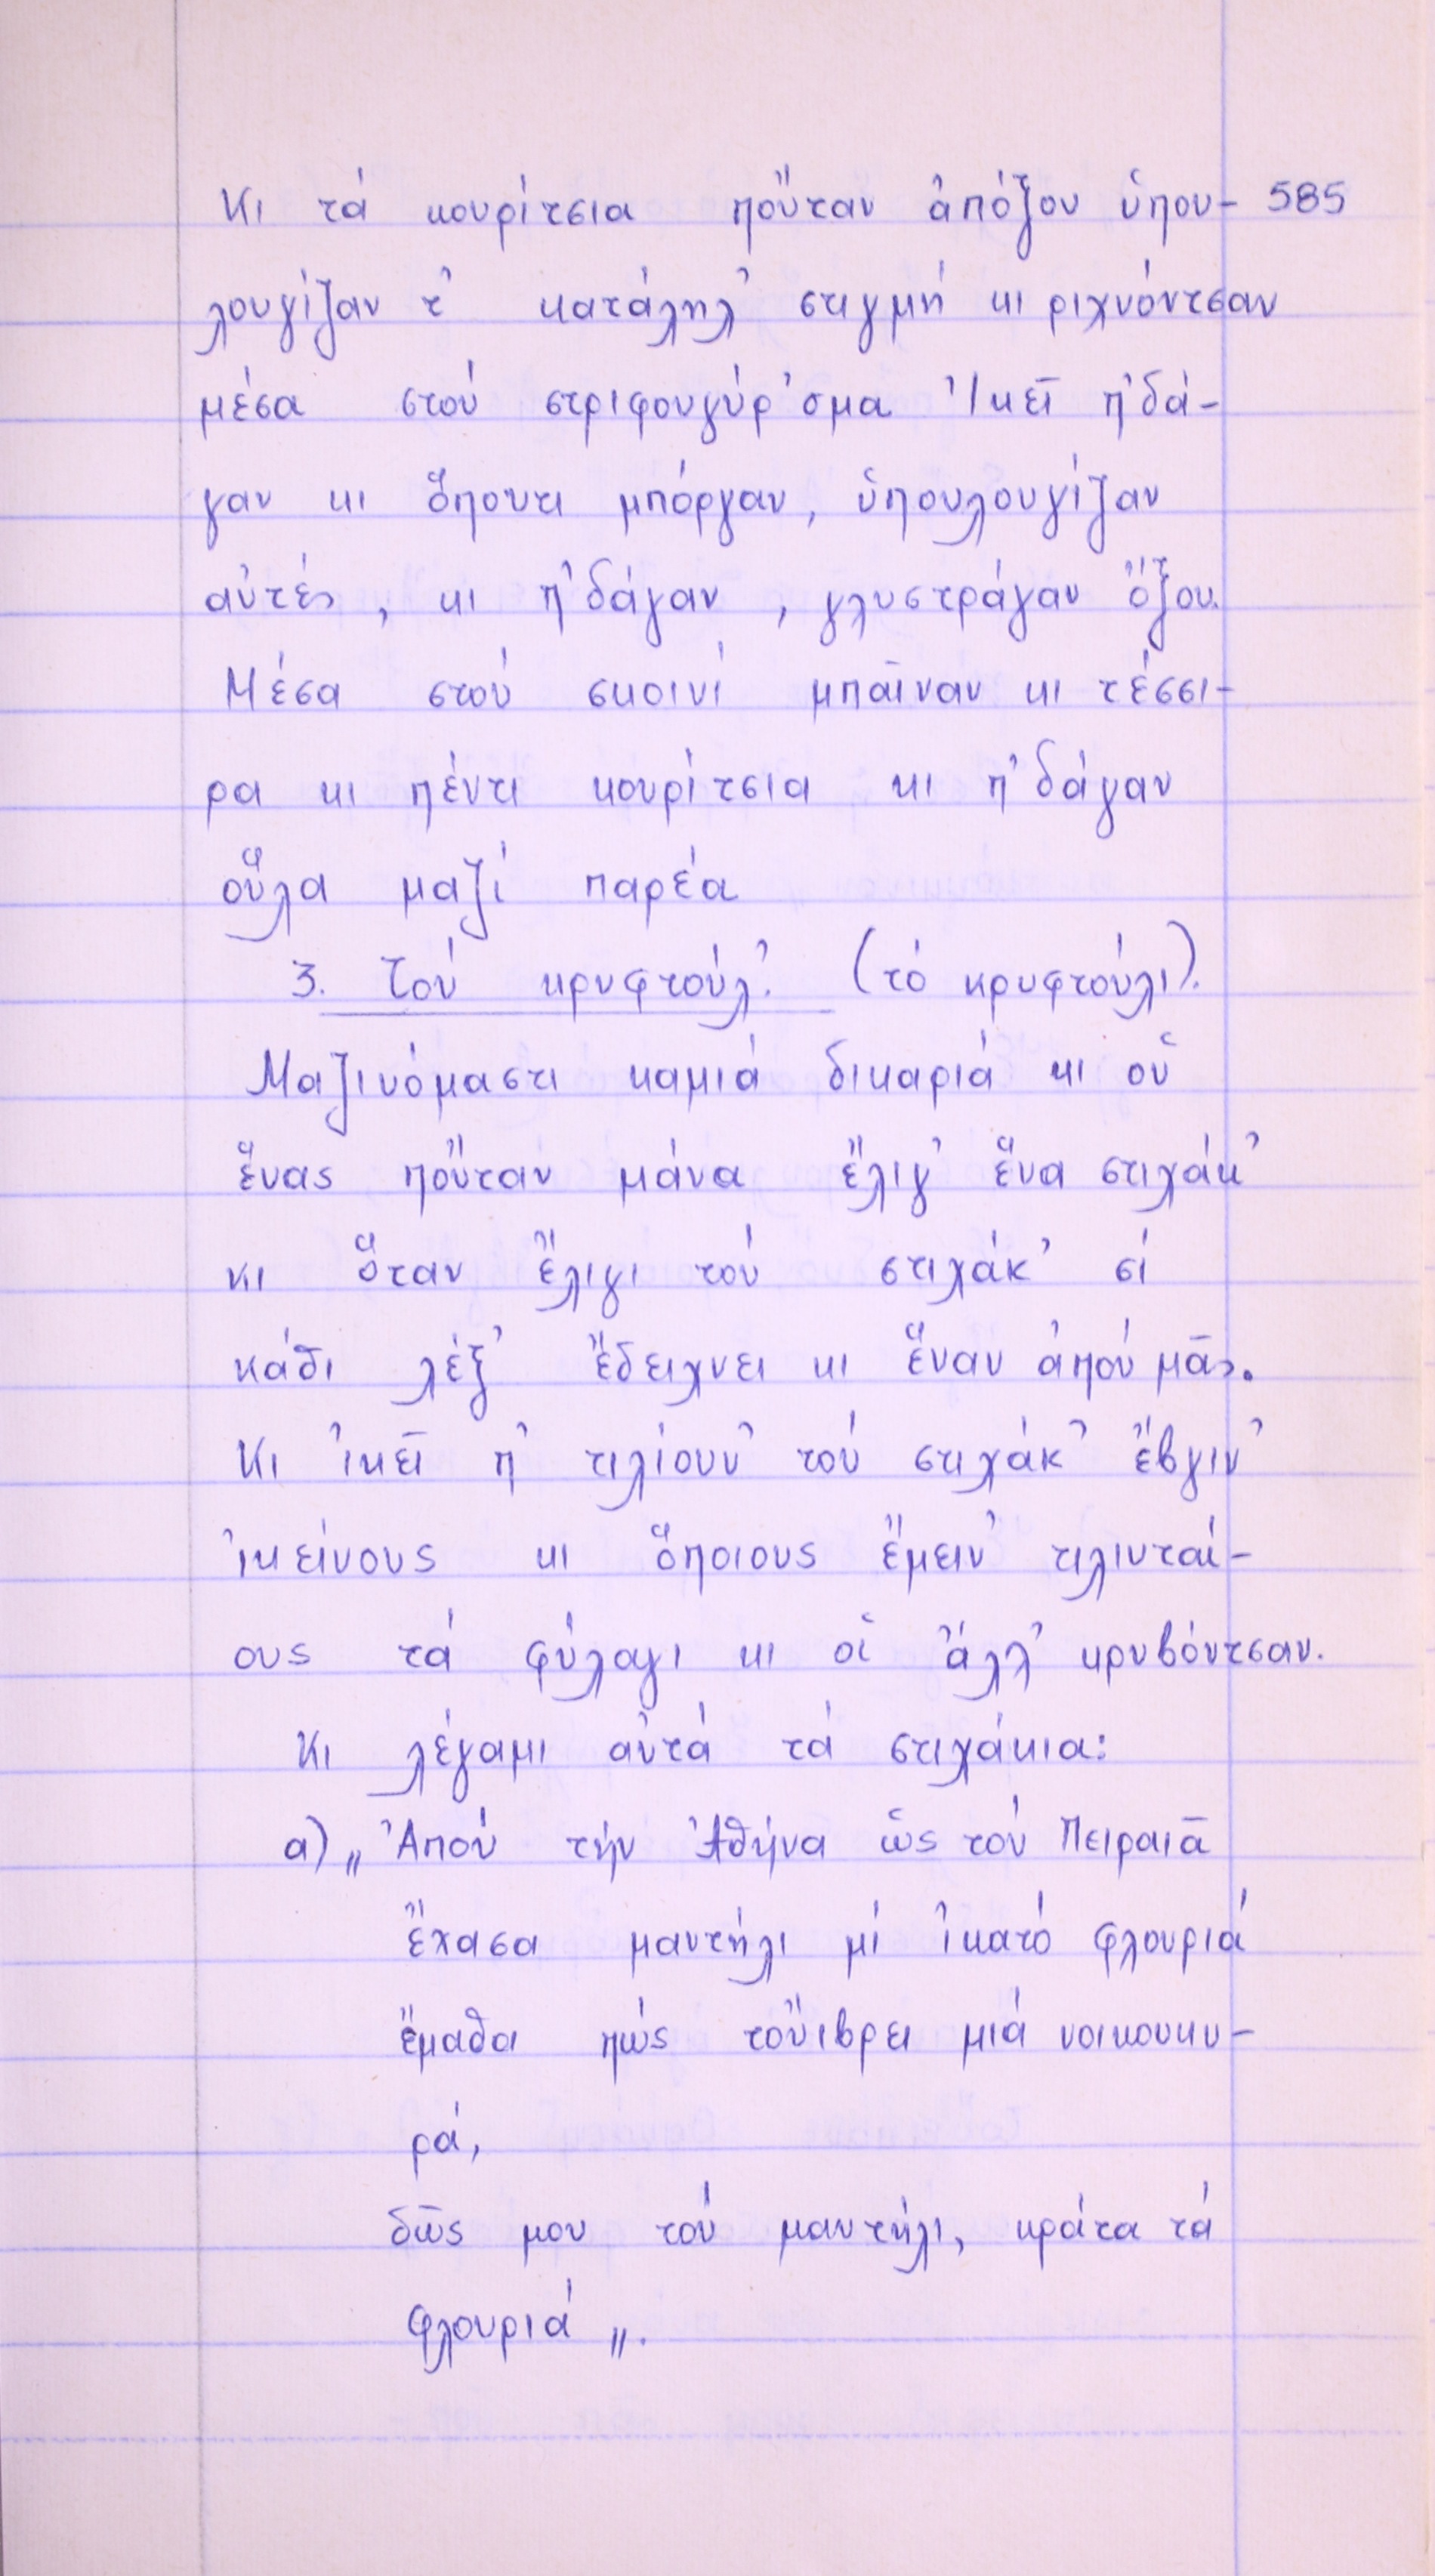 Κι τά κουρίτσια ποὔταν ἀπόξου ὑπου- 585
λουγίζαν τ' κατάλληλ' στιγμή κι ριχνόντσαν
μέσα στού στριφουγύρ'σμα 'Ικεῖ π'δά-
γαν κι ὅπουτι μπόργαν, ὑπουλουγίζαν
αὐτές, κι π'δάγαν, γλυστράγαν ὄξου.
Μέσα στού σκοινί μπαῖναν κι τέσσι-
ρα κι πέντι κουρίτσια κι π'δάγαν
οὕλα μαζί παρέα
3. Τού κρυφτούλ'. (τό κρυφτούλι).
Μαζινόμαστι καμιά δικαριά κι οὑ
ἕνας ποὔταν μάνα ἔλιγ' ἕνα στιχάκ'
κι ὅταν ἔλιγι τού στιχάκ' σί
κάθι λέξ' ἔδειχνει κι ἕναν ἀπού μᾶς.
Κι ἰκεῖ π' τιλίουν' τού στιχάκ' ἔβγιν'
ἰκείνους κι ὅποιους ἔμειν' τιλινταί-
ους τά φύλαγι κι οἱ ἄλλ' κρυβόντσαν.
Κι λέγαμι αὐτά τά στιχάκια:
α) „ Ἀπού τήν Ἀθήνα ὡς τού Πειραιᾶ
ἔχασα μαντήλι μί ἰκατό φλουριά
ἔμαθα πώς τοὔιβρει μιά νοικουκυ-
ρά,
δῶς μου τού μαντήλι, κράτα τά
φλουριά „.